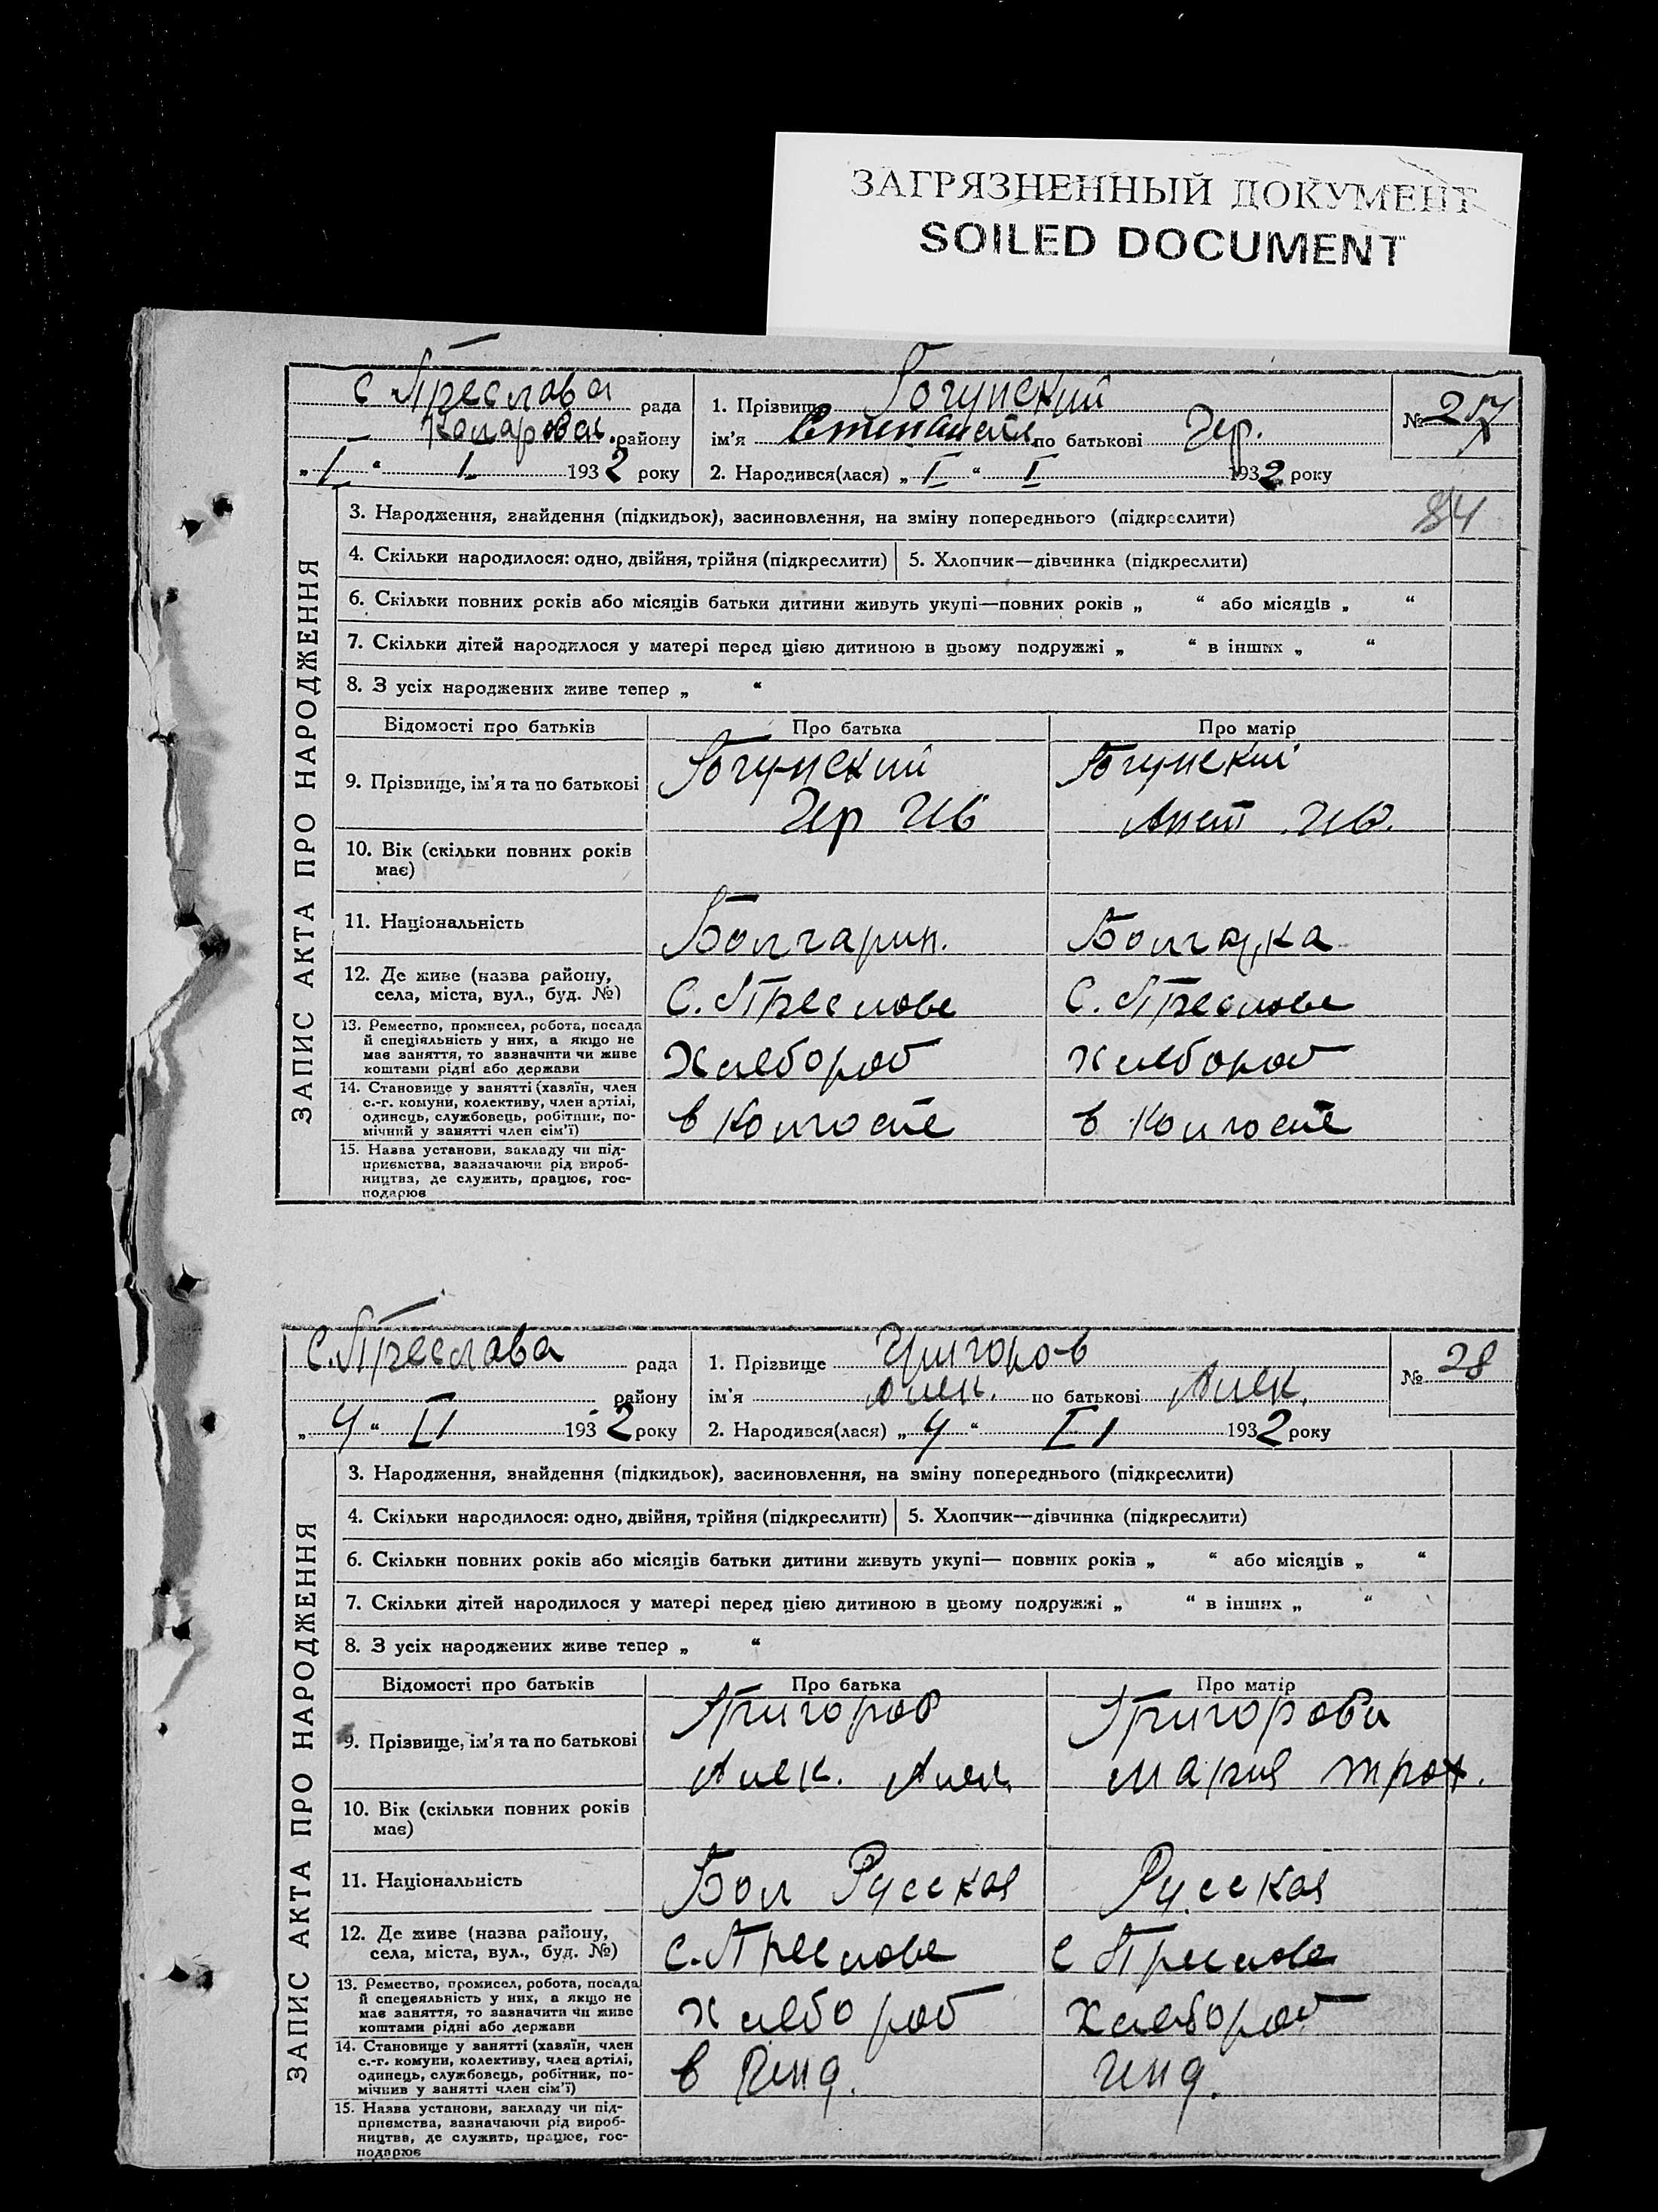 ЗАГРЯЗНЕННЫЙ ДОКУМЕНТ
SOILED DOCUMENT
с Преслава рада
району
„ I “ I 1932 року
1. Прізвище
ім'я по батькові
2. Народився(лася) „ I “ I 1932 року
№ 27
84
ЗАПИС АКТА ПРО НАРОДЖЕННЯ
3. Народження, знайдення (підкидьок), засиновлення, на зміну попереднього (підкреслити)
4. Скільки народилося: одно, двійня, трійня (підкреслити) 5. Хлопчик—дівчинка (підкреслити)
6. Скільки повних років або місяців батьки дитини живуть укупі—повних років „ “ або місяців „ “
7. Скільки дітей народилося у матері перед цією дитиною в цьому подружжі „ “ в інших „ “
8. З усіх народжених живе тепер „ “
Відомості про батьків Про батька Про матір
9. Прізвище, ім'я та по батькові
Ив Ив.
10. Вік (скільки повних років
має)
11. Національність Болгарин. Болгарка
12. Де живе (назва району,
села, міста, вул., буд. №) С. Преслове С. Преслове
13. Ремество, промисел, робота, посада
й спеціяльність у них, а якщо не
має заняття, то зазначити чи живе
коштами рідні або держави
Хлебороб Хлебороб
14. Становище у занятті (хазяїн, член
с.-г. комуни, колективу, член артілі,
одинець, службовець, робітник, по-
мічний у занятті член сім'ї)
в Колгоспе в Колгоспе
15. Назва установи, закладу чи під-
приємства, зазначаючи рід вироб-
ництва, де служить, працює, гос-
подарює
С. Преслава рада
району
„ 4 “ II 1932 року
1. Прізвище Григоров
ім'я Алек. по батькові Алек.
2. Народився(лася) „ 4 “ II 1932 року
№ 28
ЗАПИС АКТА ПРО НАРОДЖЕННЯ
3. Народження, знайдення (підкидьок), засиновлення, на зміну попереднього (підкреслити)
4. Скільки народилося: одно, двійня, трійня (підкреслити) 5. Хлопчик—дівчинка (підкреслити)
6. Скільки повних років або місяців батьки дитини живуть укупі— повних років „ “ або місяців „ “
7. Скільки дітей народилося у матері перед цією дитиною в цьому подружжі „ “ в інших „ “
8. З усіх народжених живе тепер „ “
Відомості про батьків Про батька Про матір
9. Прізвище, ім'я та по батькові
Григоров Григорова
Алек. Алек Мария Троф.
10. Вік (скільки повних років
має)
11. Національність Бол Русская Русская
12. Де живе (назва району,
села, міста, вул., буд. №) с. Преслове с Преслове
13. Ремество, промисел, робота, посада
й спецеяльність у них, а якщо не
має заняття, то зазначити чи живе
коштами рідні або держави
хлебороб хлебороб
14. Становище у занятті (хазяїн, член
с.-г. комуни, колективу, член артілі,
одинець, службовець, робітник, по-
мічний у занятті член сім'ї)
в Инд. Инд.
15. Назва установи, закладу чи під-
приємства, зазначаючи рід вироб-
ництва, де служить, працює, гос-
подарює